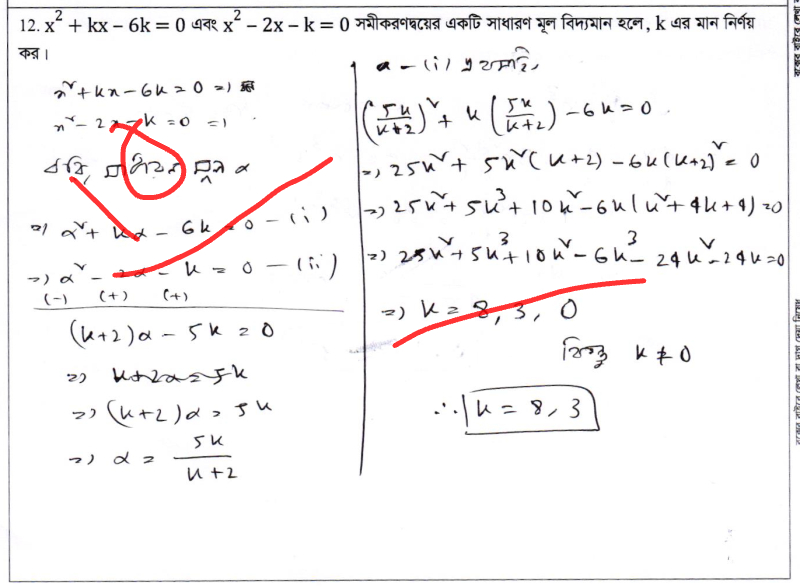 12. x² + kx − 6k = 0 এবং x² − 2x − k = 0 সমীকরণদ্বয়ের একটি সাধারণ মূল বিদ্যমান হলে, k এর মান নির্ণয়
কর।
x² + kx − 6k = 0 ⇒)
x² − 2x − k = 0 ⇒)
ধরি, সাধারন মূল α
⇒) α² + kα − 6k = 0 — (i)
⇒) α² − 2α − k = 0 — (ii)
(−) (+) (+)
(k+2)α − 5k = 0
⇒) k+2α = 5k
⇒) (k+2)α = 5k
⇒) α = 5k/(k+2)
α — (i) এ বসাই,
(5k/(k+2))² + k(5k/(k+2)) − 6k = 0
⇒) 25k² + 5k²(k+2) − 6k(k+2)² = 0
⇒) 25k² + 5k³ + 10k² − 6k(k² + 4k + 4) = 0
⇒) 25k² + 5k³ + 10k² − 6k³ − 24k² − 24k = 0
⇒) k = 8, 3, 0
কিন্তু k ≠ 0
∴ k = 8, 3